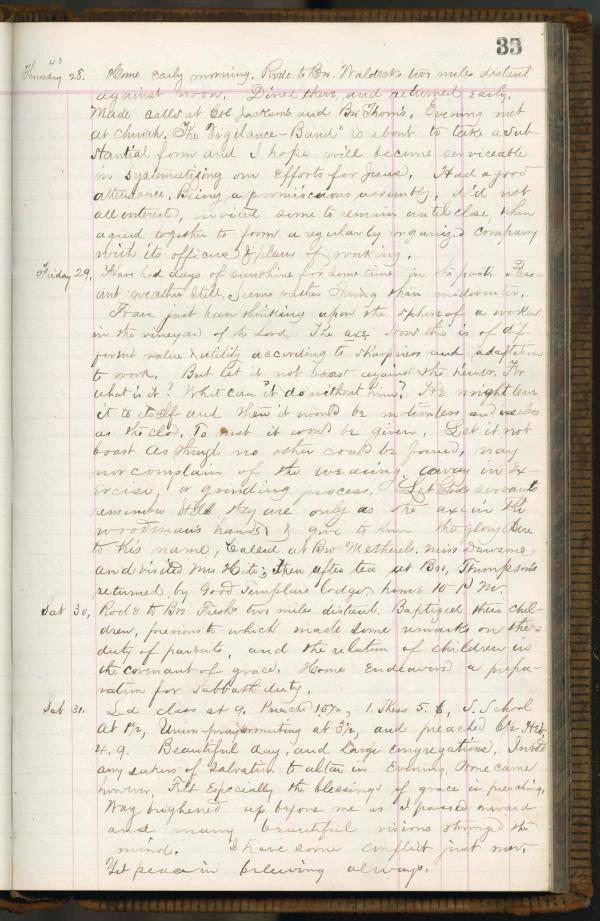 35
Thursday 28. Home early morning. Rode to Bro. Waldecks two miles distant
against noon. Dined there, and returned early.
Made calls at Col Jacksons and Bro Thorn's. Evening met
at church. The "Vigilance-Band" is about to take a sub-
stantial form and I hope will become serviceable
in systematizing our Efforts for Jesus. Had a good
attendance, Being a promiscuous assembly, did not
all interested, invited some to remain until close, then
agreed together to form a regularly organized company
with its officers & plans of working.
Friday 29. Have had days of sunshine for some time in the past. Pleas-
ant weather still, seems rather Spring than midwinter.
Have just been thinking upon the sphere of a worker
in the vineyard of the Lord. The axe. Now this is of dif
ferent value & utility according to sharpness and adaptation
to work. But let it not boast against the hewer. For
what is it? What can it do without him? He might leave
it to itself and then it would be motionless and useless
as the clod, To rust it would be given. Let it not
boast as though no other could be found, nay
nor complain of the wearing away in ex-
ercise, or grinding process. Let Gods servants
remember they are only as the axe in the
woodmans hands & give to him the glory due
to his name. Called at Bro Metherels. Miss Dawsons
and visited Mrs Hite; then after tea at Bro. Thompson's
returned by Good Templars lodge. home 10 P.M.
Sat 30, Rode to Bro two miles distant. Baptized their chil-
dren, previous to which made some remarks on the
duty of parents, and the relation of children in
the covenant of grace. Home Endeavored a prepa-
ration for Sabbath duty.
Sab 31. Led class at 9. Preached 10½, 1. Thess 5. 6, S. School
at 1½, Union prayermeeting at 3½, and preached 6½ Heb.
4. 9. Beautiful day, and Large congregations. Invited
any seekers of Salvation to altar in Evening. None came
however, Felt Especially the blessings of grace in preaching.
Way brightened up before me as I passed onward
and many beautiful visions thronged the
mind. I have some conflict just now.
Yet peace in believing always.